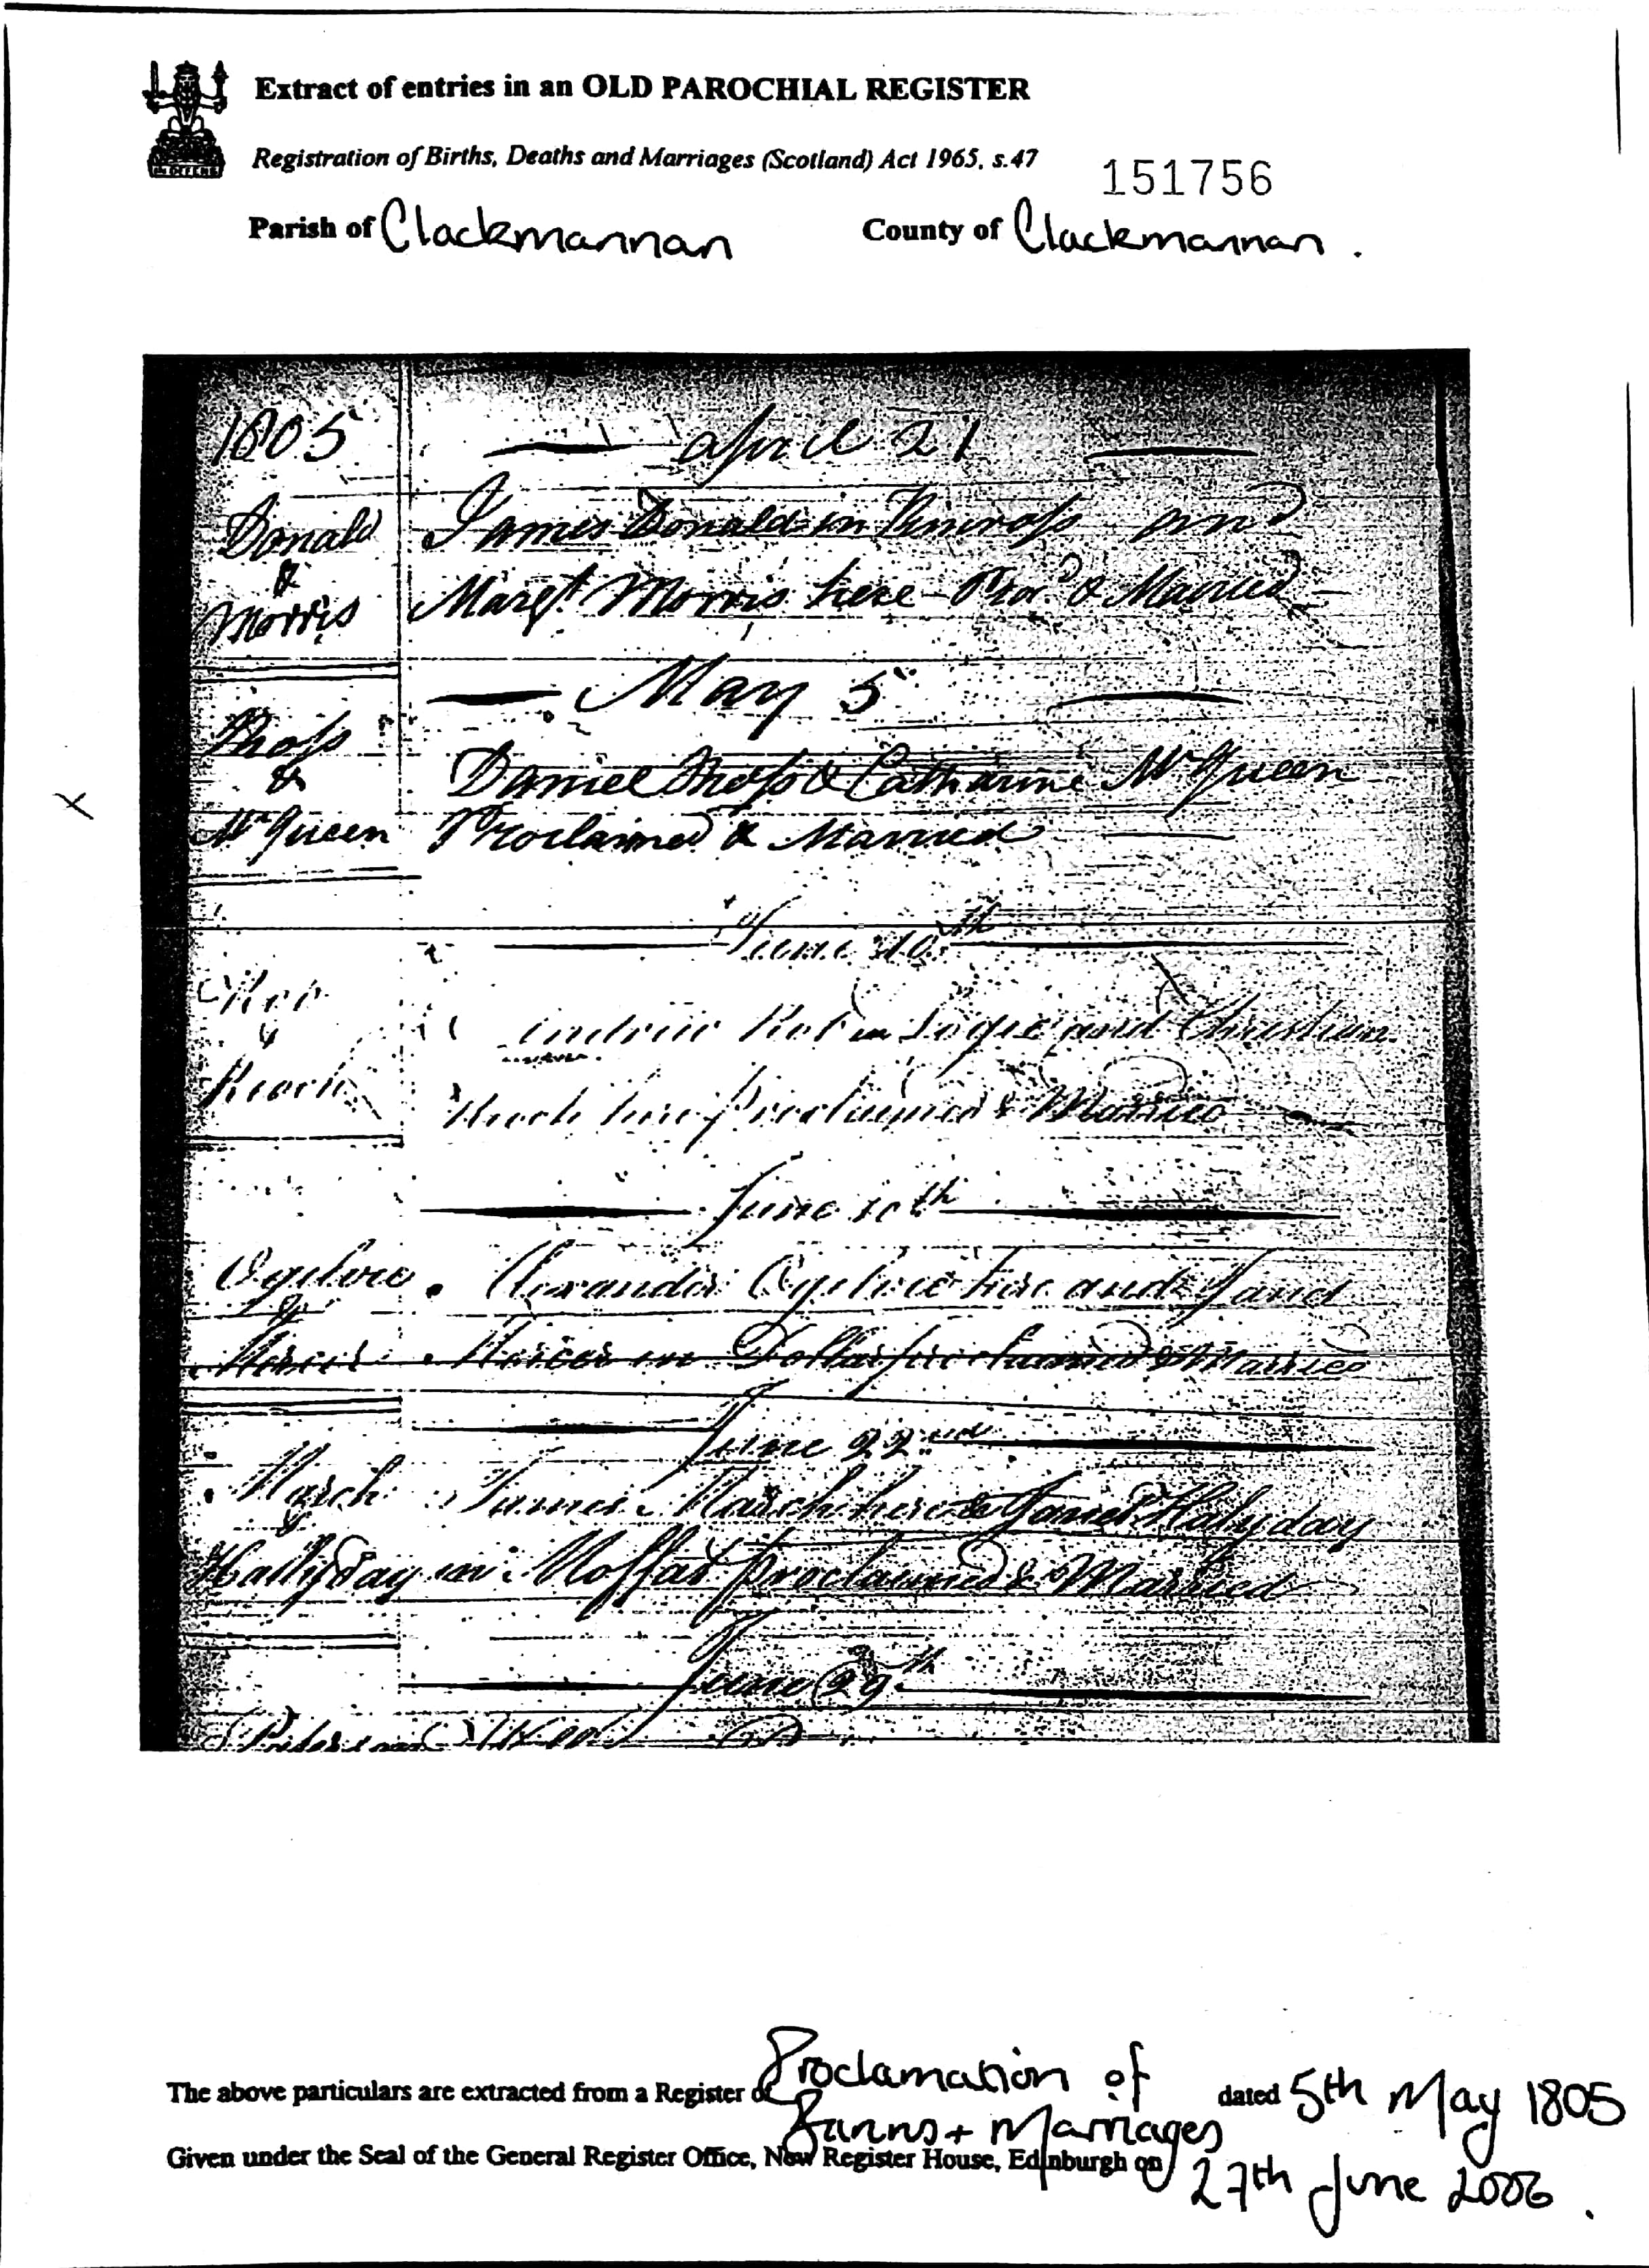 Extract of entries in an OLD PAROCHIAL REGISTER
Registration of Births, Deaths and Marriages (Scotland) Act 1965, s.47
151756
Parish of Clackmannan County of Clackmannan.
1805 April 21
Donald James Donald in Kinross and
&
Morris Margt. Morris here Procd & Married
May 5
&
Daniel & Catharine McQueen
McQueen Proclaimed & Married
June 10th
and Christian
here Proclaimed & Married
June 10th
Ogilvie Alexander Ogilvie here and Janet
&
Mercer Mercer in Dollar proclaimed & Married
June 22nd
March James March here & Janet Halyday
&
Hallyday in Moffat proclaimed & Married
June 29th
The above particulars are extracted from a Register of Proclamation of dated 5th May 1805
Banns + Marriages
Given under the Seal of the General Register Office, New Register House, Edinburgh on 27th June 2006.